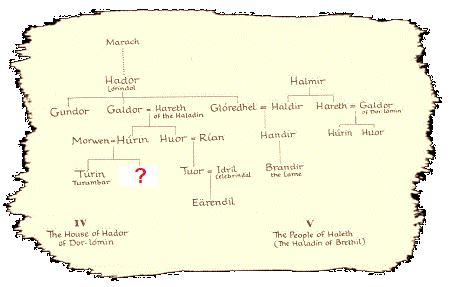 Marach
Hador
Lórindol
Halmir
Gundor Galdor = Hareth Glóredhel = Haldir Hareth = Galdor
of the Haladin of Dor-lómin
Morwen = Húrin Huor = Rían Handir Húrin Huor
Túrin ? Tuor = Idril Brandir
Turambar Celebrindal the Lame
Eärendil
IV V
The House of Hador The People of Haleth
of Dor-lómin (The Haladin of Brethil)